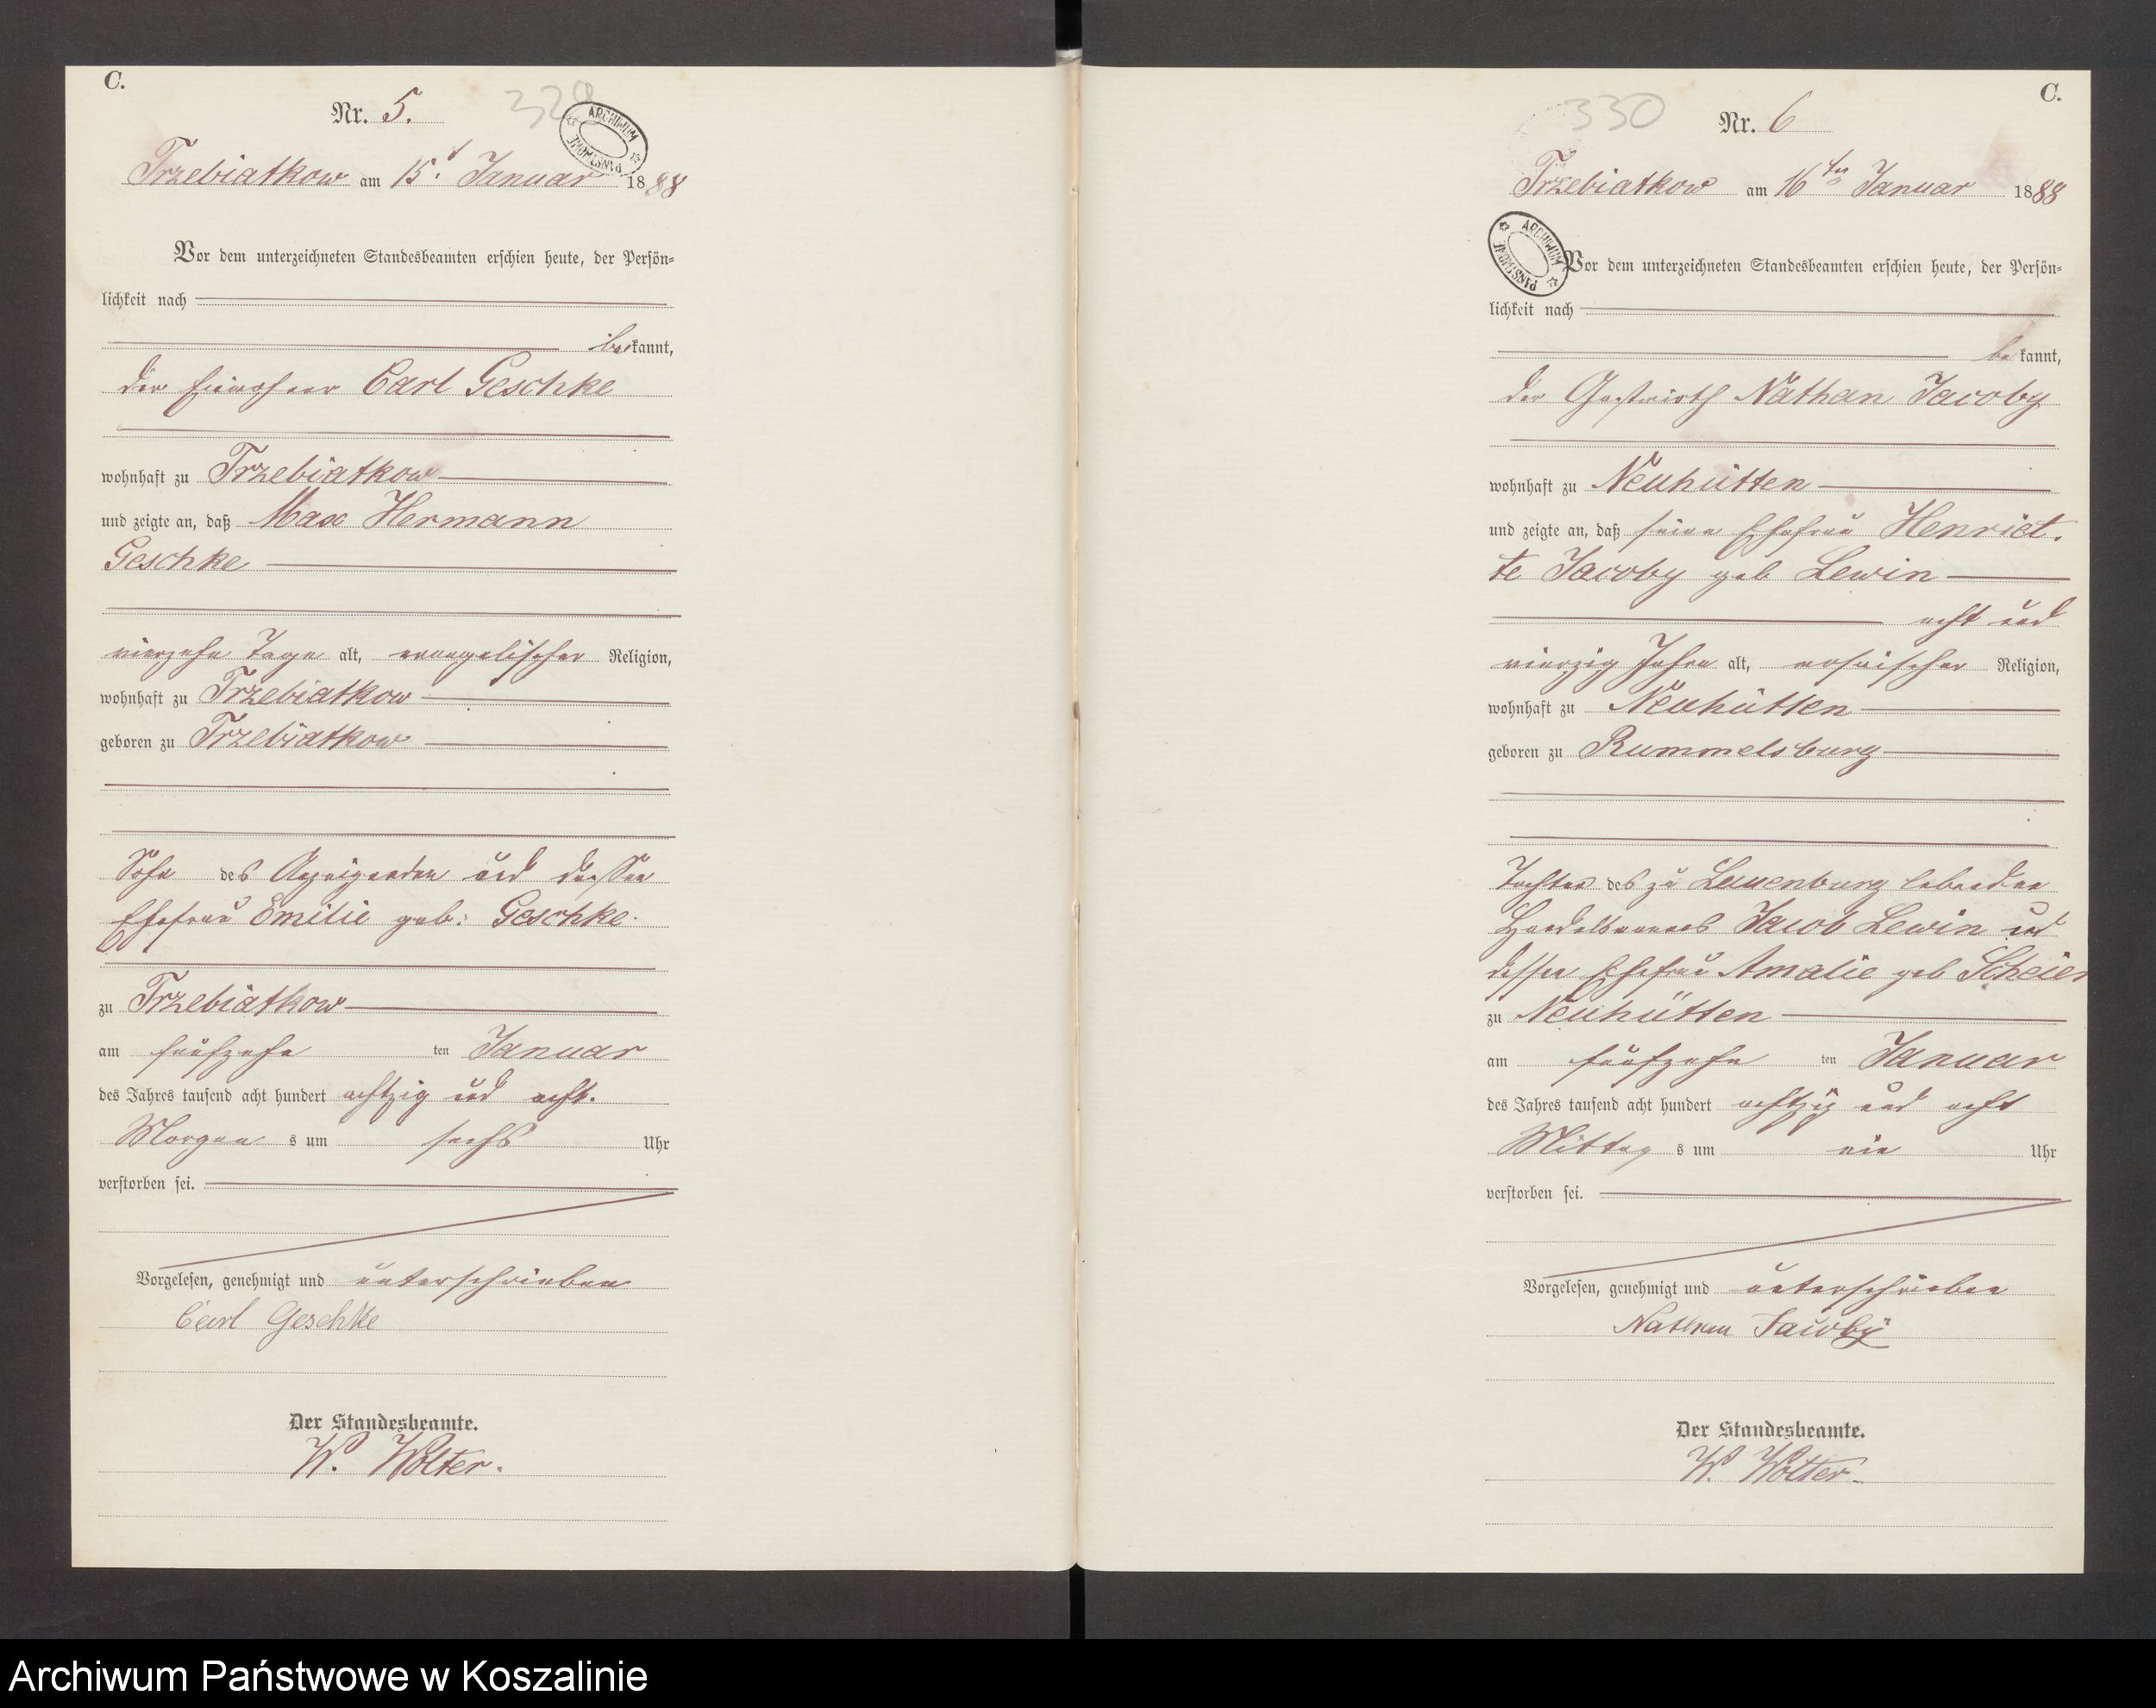 C.
Nr. 5.
329
ARCHIWUM PAŃSTWOWE
Trzebiatkow am 15. Januar 1888
Vor dem unterzeichneten Standesbeamten erschien heute, der Persön=
lichkeit nach
bekannt,
der Einwohner Carl Geschke
wohnhaft zu Trzebiatkow
und zeigte an, daß Max Hermann
Geschke
vierzehn Tage alt, evangelischer Religion,
wohnhaft zu Trzebiatkow
geboren zu Trzebiatkow
Sohn des Anzeigenden und dessen
Ehefrau Emilie geb: Geschke.
zu Trzebiatkow
am fünfzehn ten Januar
des Jahres tausend acht hundert achtzig und acht.
Morgen s um sechs Uhr
verstorben sei.
Vorgelesen, genehmigt und unterschrieben
Carl Geschke
Der Standesbeamte.
W. Wolter.
C.
330
Nr. 6
Trzebiatkow am 16ten Januar 1888
ARCHIWUM PAŃSTWOWE
Vor dem unterzeichneten Standesbeamten erschien heute, der Persön=
lichkeit nach
bekannt,
der Gastwirth Nathan Jacoby
wohnhaft zu Neuhütten
und zeigte an, daß seine Ehefrau Henriet.
te Jacoby geb Lewin
acht und
vierzig Jahre alt, mosaischer Religion,
wohnhaft zu Neuhütten
geboren zu Rummelsburg
Tochter des zu Lauenburg lebenden
Handelsmanns Jacob Lewin und
dessen Ehefrau Amalie geb Scheier
zu Neuhütten
am fünfzehn ten Januar
des Jahres tausend acht hundert achtzig und acht
Mittag s um ein Uhr
verstorben sei.
Vorgelesen, genehmigt und unterschrieben
Nathan Jacoby
Der Standesbeamte.
W. Wolter
Archiwum Państwowe w Koszalinie